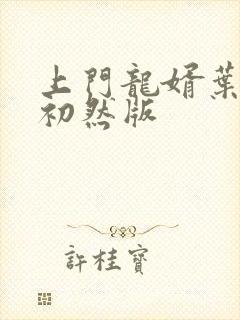 上門龍婿葉
初然版
許桂寶